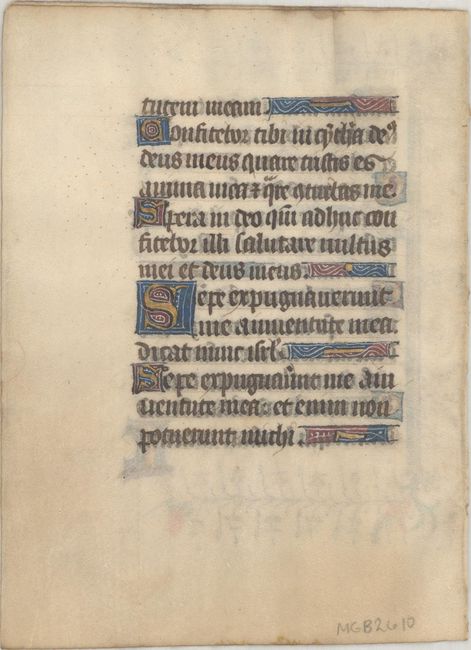 tutem meam
Confitebor tibi in cythara deus
deus meus quare tristis es
anima mea et quare conturbas me.
Spera in deo quoniam adhuc con
fitebor illi salutare vultus
mei et deus meus.
Sepe expugnaverunt
me a iuventute mea.
dicat nunc israel.
Sepe expugnaverunt me a iu
ventute mea: et enim non
potuerunt michi.
MGB2610